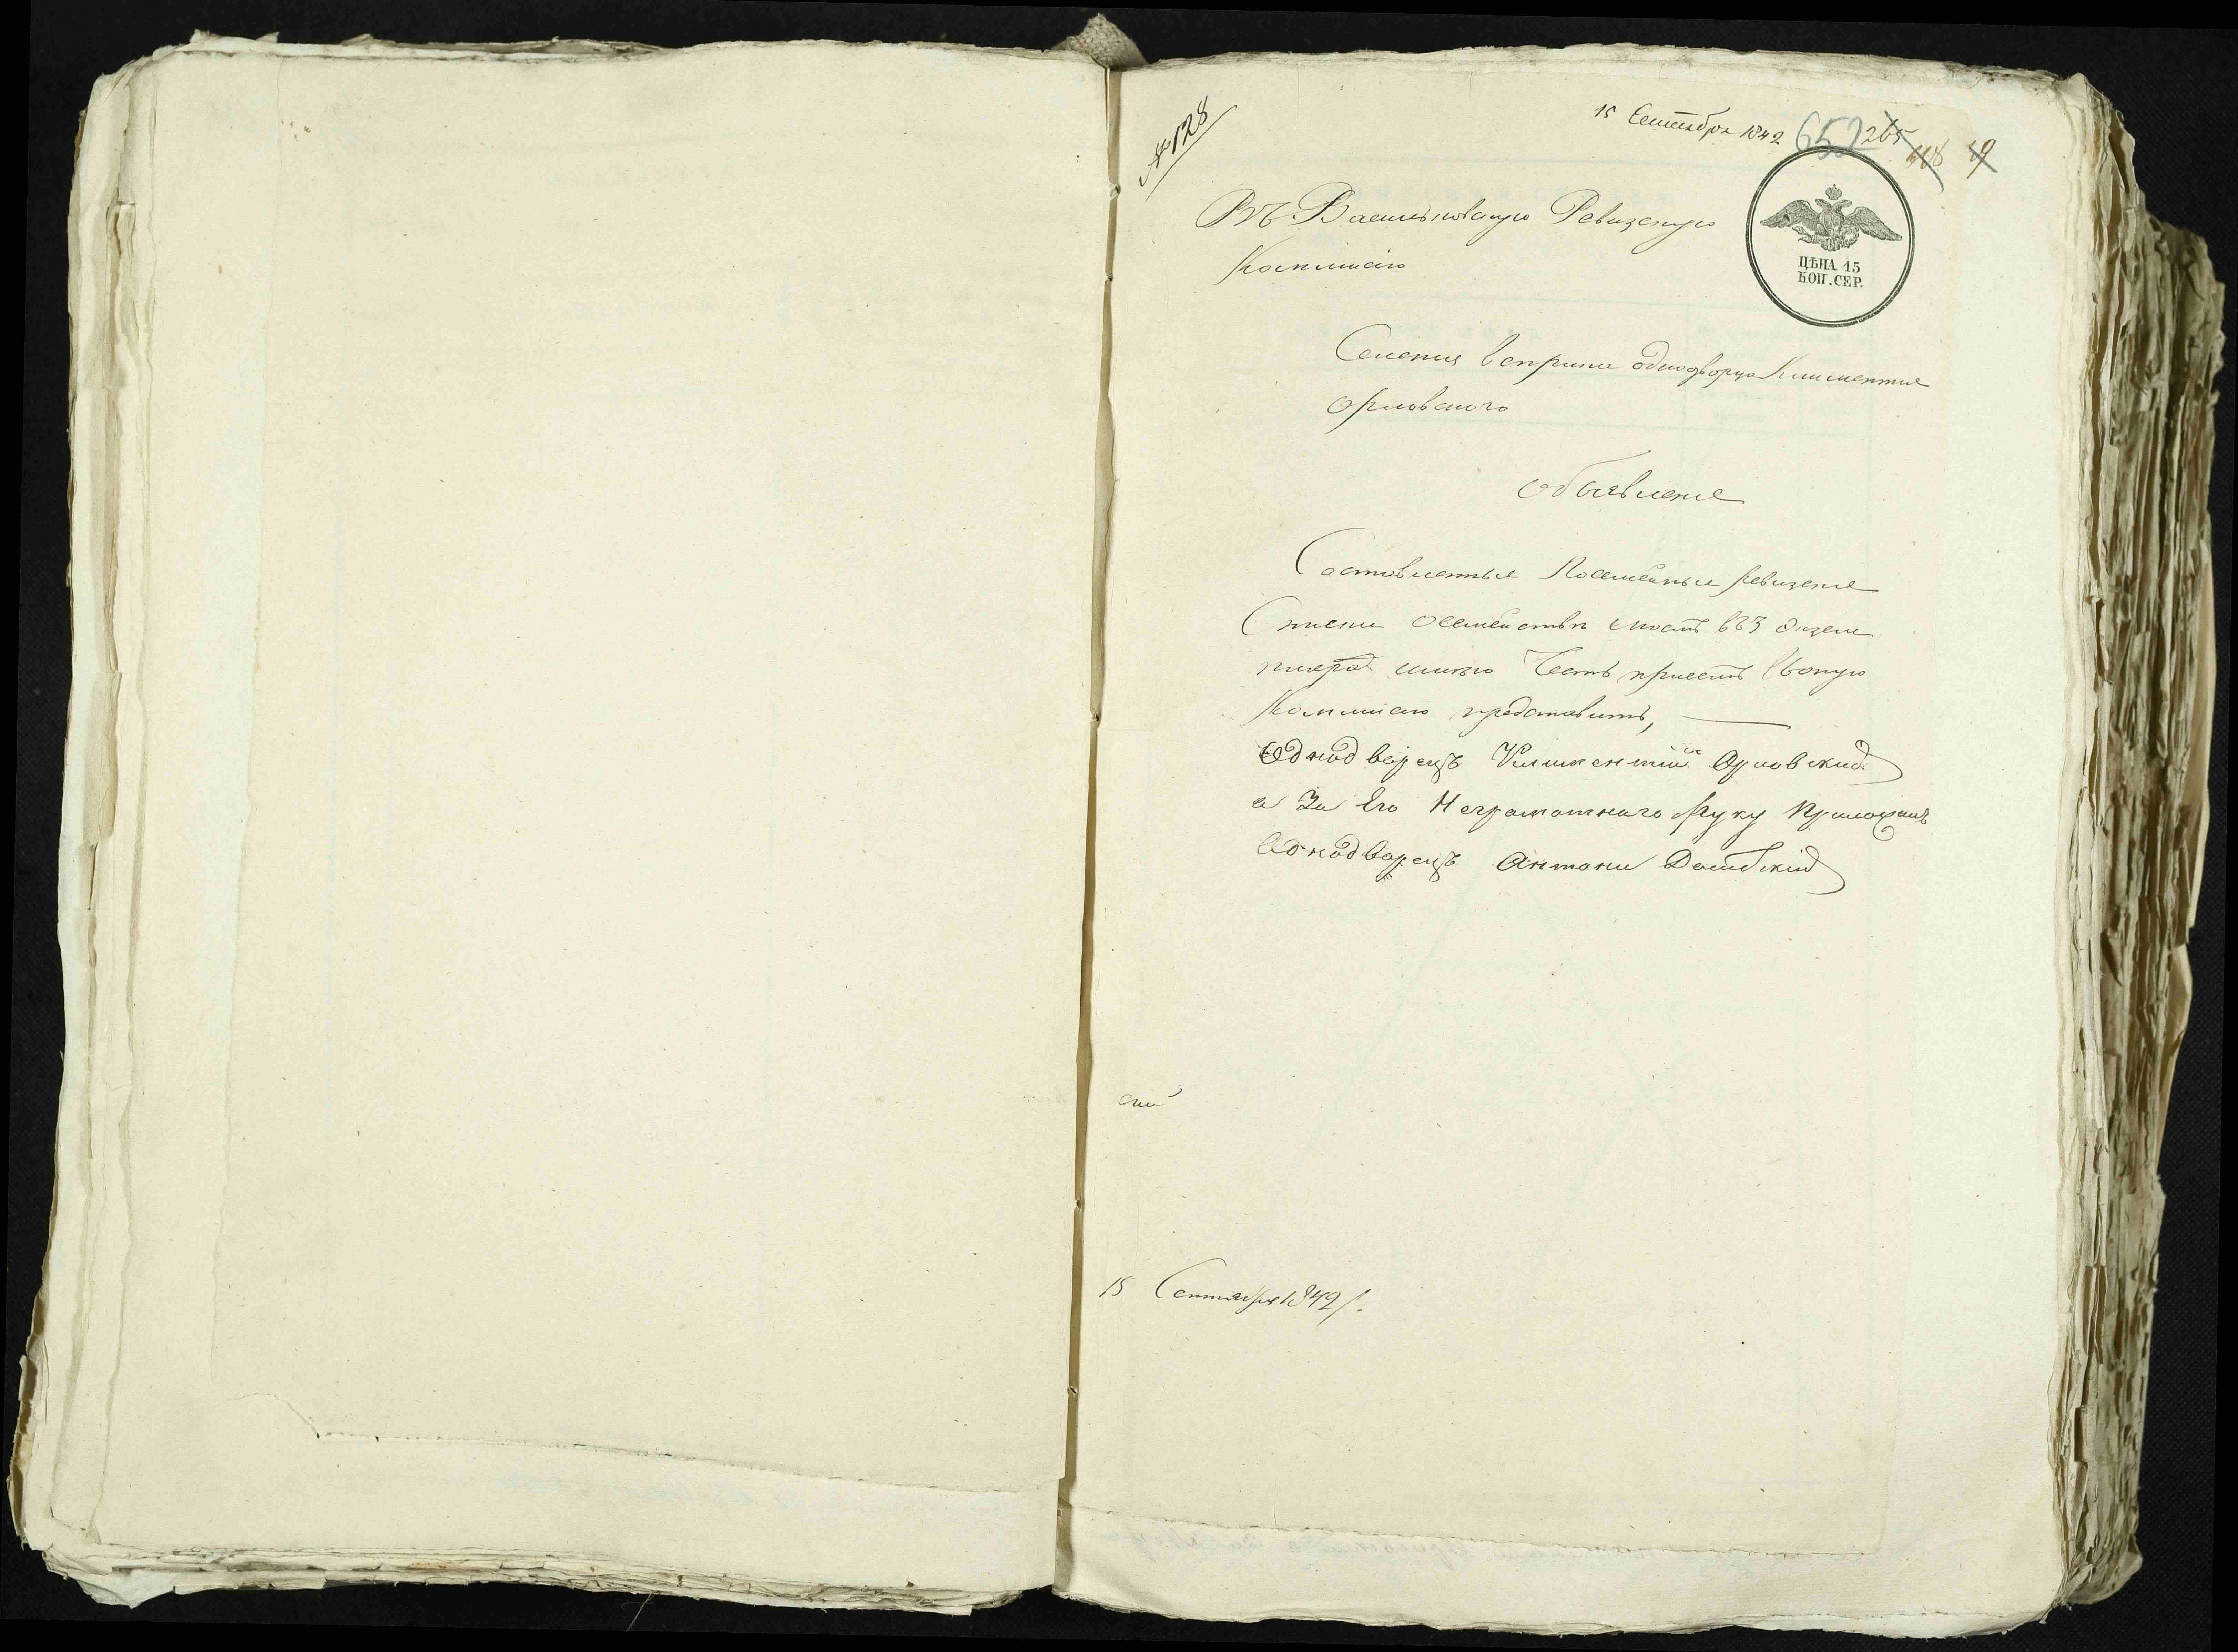 № 128
15 Сентября 1842
652
265
118
49
Въ Васильковскую Ревизскую
Коммисию
ЦѢНА 15
КОП. СЕР.
Селения Веприка однодворца Климентия
Орловского
Объявление
Составленные Посемейные ревизские
Списки о семействе моемъ въ 3 экзем
плярах имею Честь при семъ в оную
Коммисию представить,
Однодворецъ Климентий Орловский
а За Его Неграмотнаго Руку Приложилъ
Однодворецъ Антони
15 Сентября 1842 г.